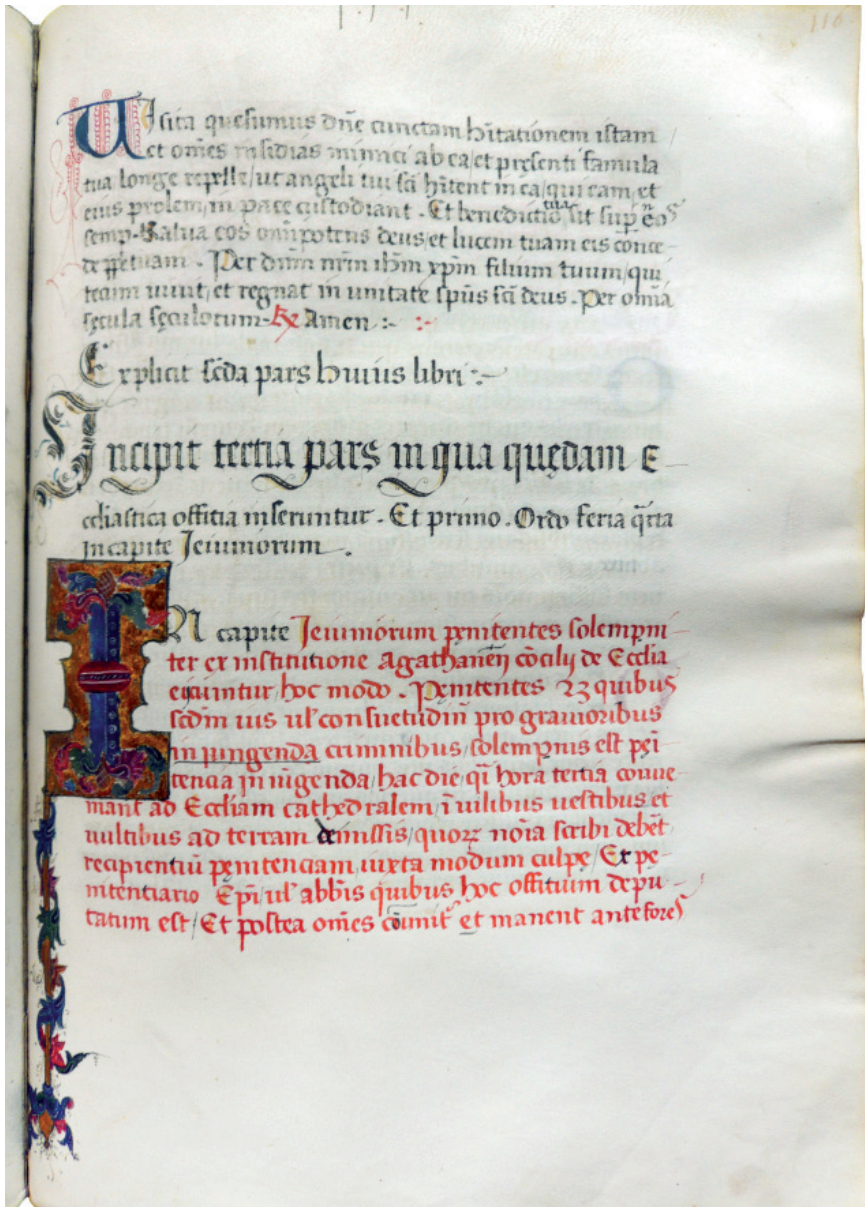 116
Uisita quesumus dñe cunctam hitationem istam
et om̃es insidias inimici ab ea / et pręsenti famula
tua longe repelle / ut angeli tui sc̃i hitent in ea / qui eam et
eius prolem, in pace custodiant . Et benedictio tua sit sup̃ eos
semp . Salua eos om̃ipotens deus / et lucem tuam eis conce-
de ꝑpetuam . Per dñm nr̃m ihm̃ xpm̃ filium tuum / qui
tecum uiuit, et regnat in unitate sp̃us sc̃i deus . Per om̃ia
sęcula sęculorum . Amen :-
Explicit sc̃da pars huius libri :-
Incipit tertia pars in qua quędam e-
ccl̃iastica offitia inseruntur . Et primo . Ordo feria q̃rta
in capite Ieiuniorum .
IN capite Ieiuniorum pęnitentes solempni-
ter ex institutione Agathaneñ cõcilij de Eccl̃ia
eijciuntur hoc modo . Pęnitentes quibus
scd̃m ius ul̓ consuetudiñ pro grauioribus
in iungenda criminibus / solempnis est pęi
tencia in iũgenda / hac die, q̃i hora tertia conue
niant ad Eccl̃iam cathedralem, ĩ uilibus uestibus et
uultibus ad terram demissis / quoꝝ nõia scribi debẽt
recipientiũ pęnitenciam iuxta modum culpę / Ex pę-
nitentiario Ep̃i / ul̓ abb̃is quibus hoc offitium depu-
tatum est / Et postea om̃es et manent ante fores